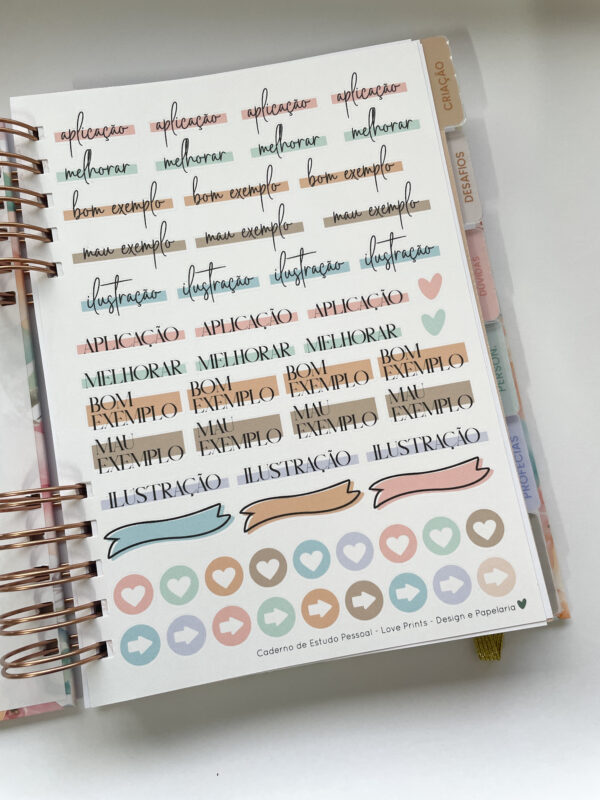 aplicação aplicação aplicação aplicação
melhorar melhorar melhorar melhorar
bom exemplo bom exemplo bom exemplo
mau exemplo mau exemplo mau exemplo
ilustração ilustração ilustração ilustração
APLICAÇÃO APLICAÇÃO APLICAÇÃO
MELHORAR MELHORAR MELHORAR
BOM BOM BOM BOM
EXEMPLO EXEMPLO EXEMPLO EXEMPLO
MAU MAU MAU MAU
EXEMPLO EXEMPLO EXEMPLO EXEMPLO
ILUSTRAÇÃO ILUSTRAÇÃO ILUSTRAÇÃO
Caderno de Estudo Pessoal - Love Prints - Design e Papelaria
CRIAÇÃO
DESAFIOS
DÚVIDAS
PERSON
PROFECIAS